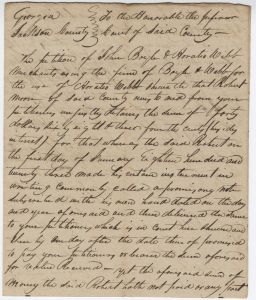 Georgia } To the Honorable the Superior
Jackson County } Court of Said County —
The petition of John Boyle & Horatio Webb
Merchants using the firm of Boyle & Webb for
the use of Horatio Webb sheweth that Robert
Moore of Said County and from your
petitioners unjustly detains the sum of forty
dollars
interest for that whereas the said Robert on
the first day of January Eighteen hundred and
twenty three made his certain instrument in
writing commonly called a promissory note
subscribed with his own hand dated on the day
and year aforesaid and then delivered the same
to your petitioners which is in court here shewn
by one day after the date then of promised
to pay your petitioners or bearer the sum aforesaid
for value Received — yet the aforesaid sum of
Money the said Robert hath not paid or any part